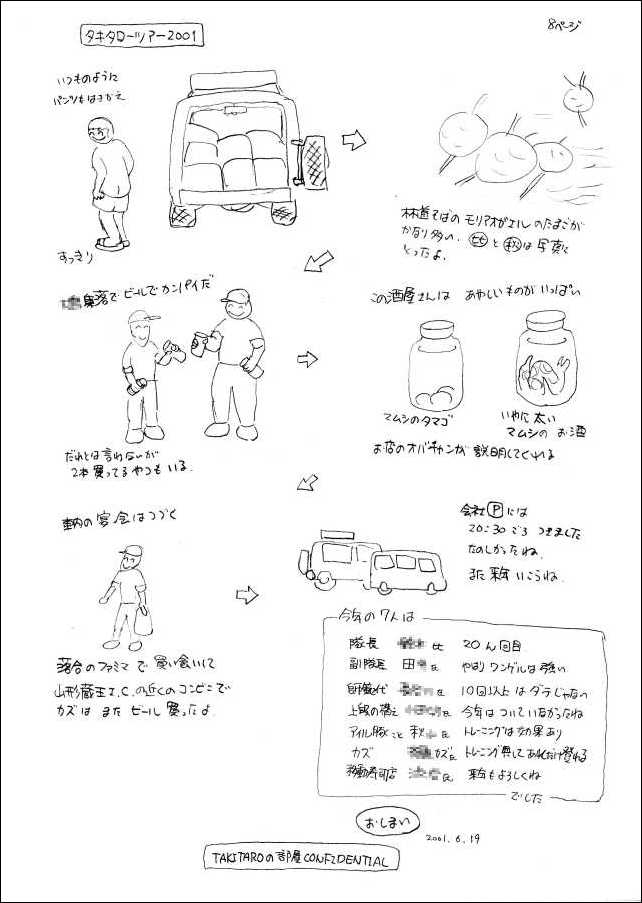 タキタローツアー2001
8ページ
いつものように
パンツもはきかえ
すっきり
林道そばの モリアオガエルのたまごが
かなり多い。 ヒと秋は写真に
とったよ。
集落で ビールで カンパイだ
だれとは言わないが
2本買ってるやつもいる。
この酒屋さんは あやしいものが いっぱい
マムシのタマゴ
いやに太い
マムシの お酒
お店のオバチャンが 説明してくれる
車内の宴会はつづく
落合のファミマで 買い食いして
山形蔵王I.C.の近くのコンビニで
カズは また ビール 買ったよ
会社Ⓟには
20:30ごろ つきました
たのしかったね。
また 来年 いこうね。
今年の7人は
隊長 氏 20ん回目
副隊長 田 氏 やはり ワンゲルは強い
氏 10回以上は ダテじゃない
氏 今年は ついていなかったね
こと 秋 氏 トレーニングは効果あり
カズ カズ氏 トレーニング無しで あれだけ登れる
移動寿司店 氏 来年もよろしくね
でした
おしまい
2001.6.19
TAKITAROの部屋 CONFIDENTIAL